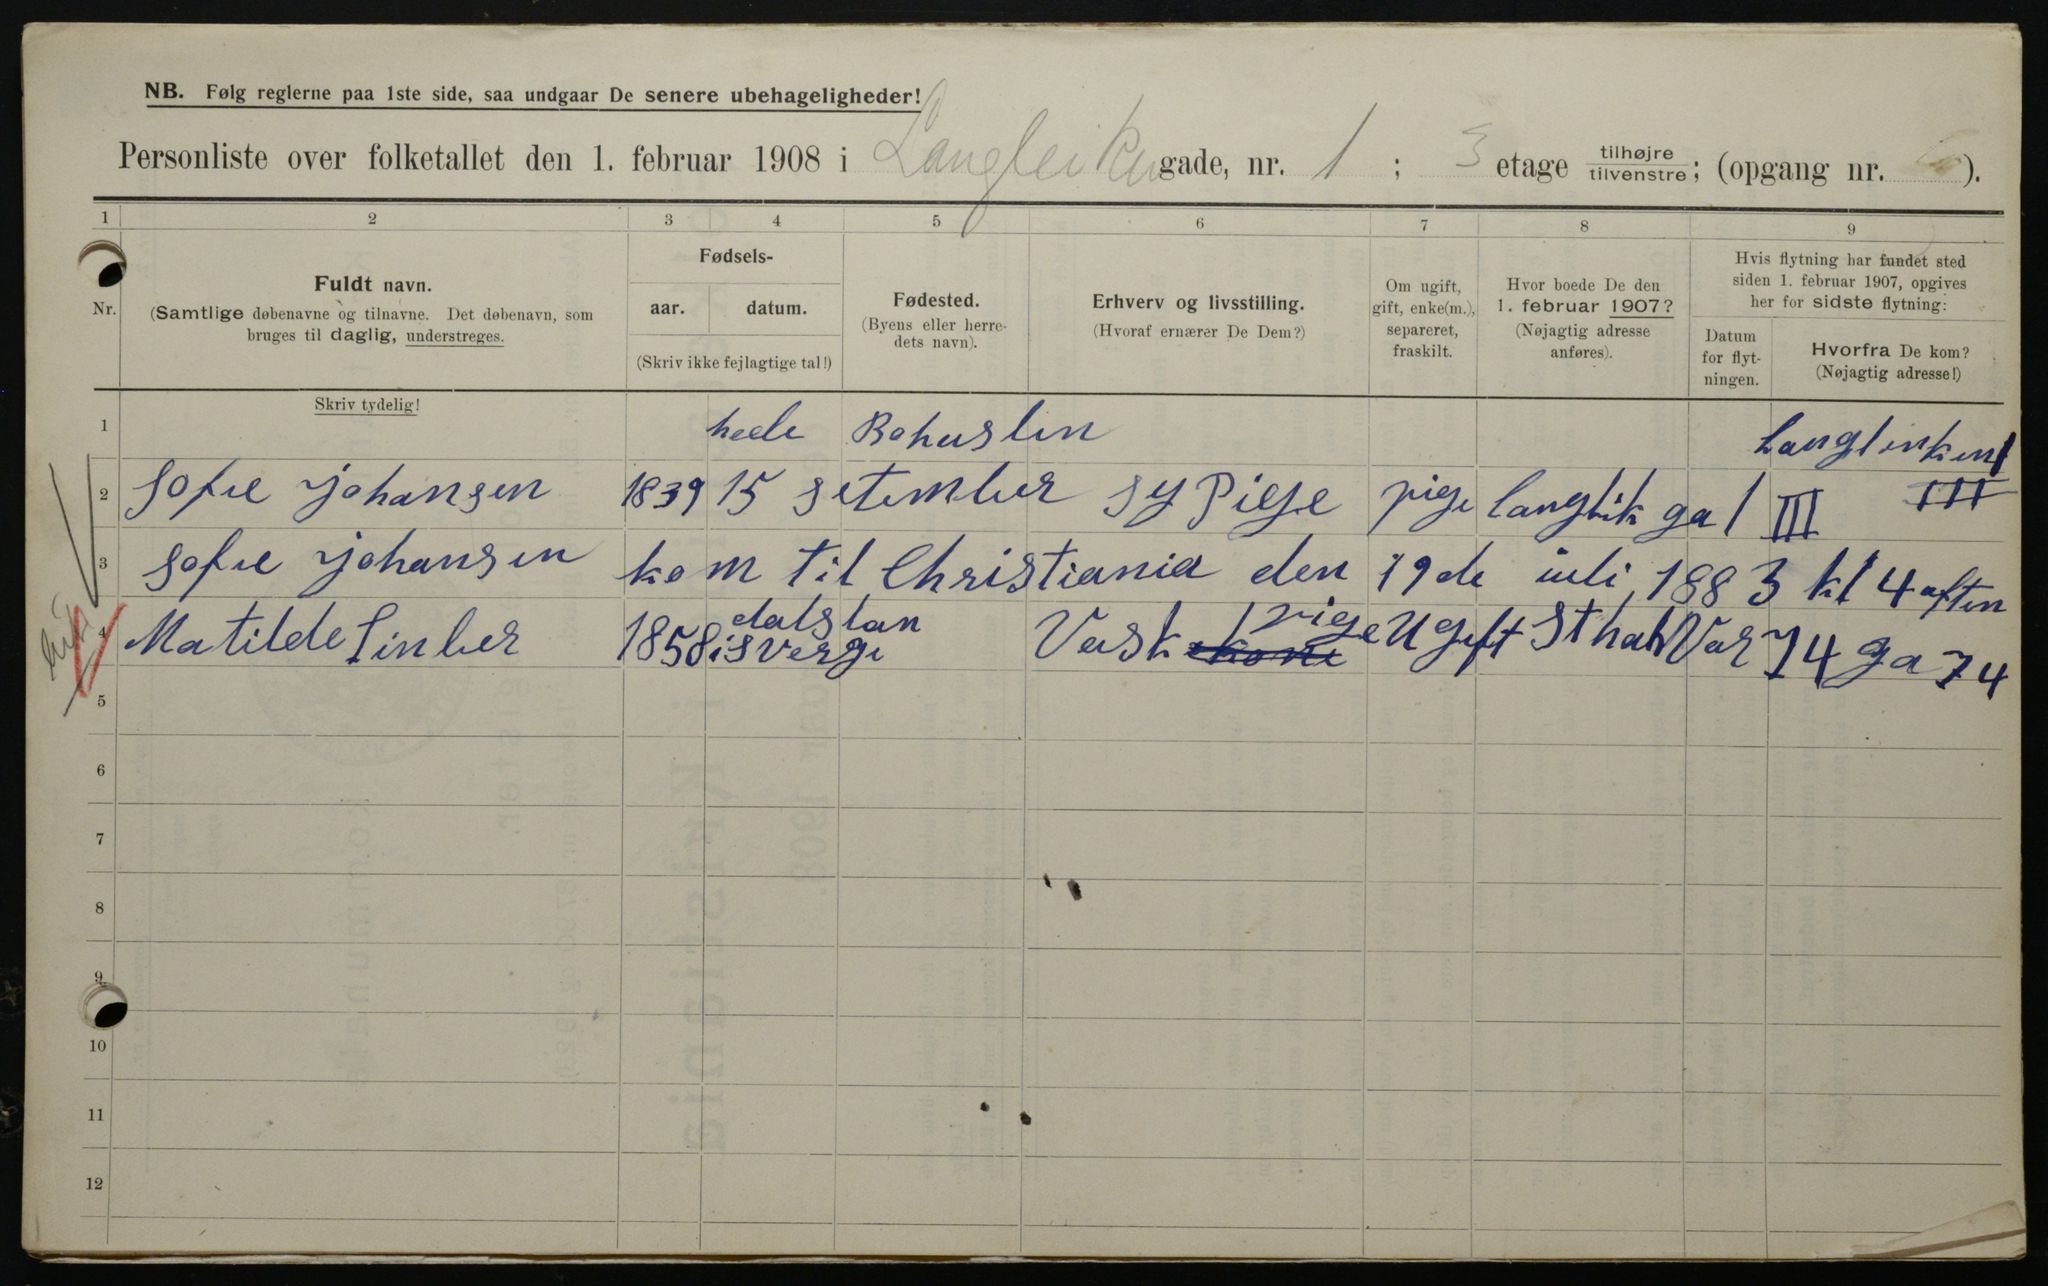 NB. Følg reglerne paa 1ste side, saa undgaar De senere ubehageligheder!
Personliste over folketallet den 1. februar 1908 i Langleiken gade, nr. 1 ; 3 etage tilhøjre/tilvenstre; (opgang nr. ).
1 2 3 4 5 6 7 8 9
Nr.
Fuldt navn.
(Samtlige døbenavne og tilnavne. Det døbenavn, som
bruges til daglig, understreges.
Skriv tydelig!
Fødsels-
aar. datum.
(Skriv ikke fejlagtige tal!)
Fødested.
(Byens eller herre-
dets navn).
Erhverv og livsstilling.
(Hvoraf ernærer De Dem?)
Om ugift,
gift, enke(m.),
separeret,
fraskilt.
Hvor boede De den
1. februar 1907?
(Nøjagtig adresse
anføres).
Hvis flytning har fundet sted
siden 1. februar 1907, opgives
her for sidste flytning:
Datum
for flyt-
ningen.
Hvorfra De kom?
(Nøjagtig adresse!)
1 heele Bohuslen
2 Sofie Johansen 1839 15 setember sy Piege pige langleik ga 1 III III
3 Sofie Johansen kom til Christiania den 19 de iuli 1883 kl 4 aften
4 Matilde Linber 1858 dalslan i sverge Vaske kone pige Ugift St hal Var 74 ga 74
5
6
7
8
9
10
11
12